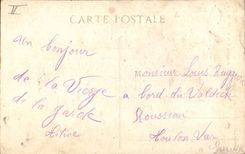 II
CARTE POSTALE
Un bonjour
de la Vierge
de la garde
Monsieur Louis
a bord du Valdeck
Rousseau
Toulon Var